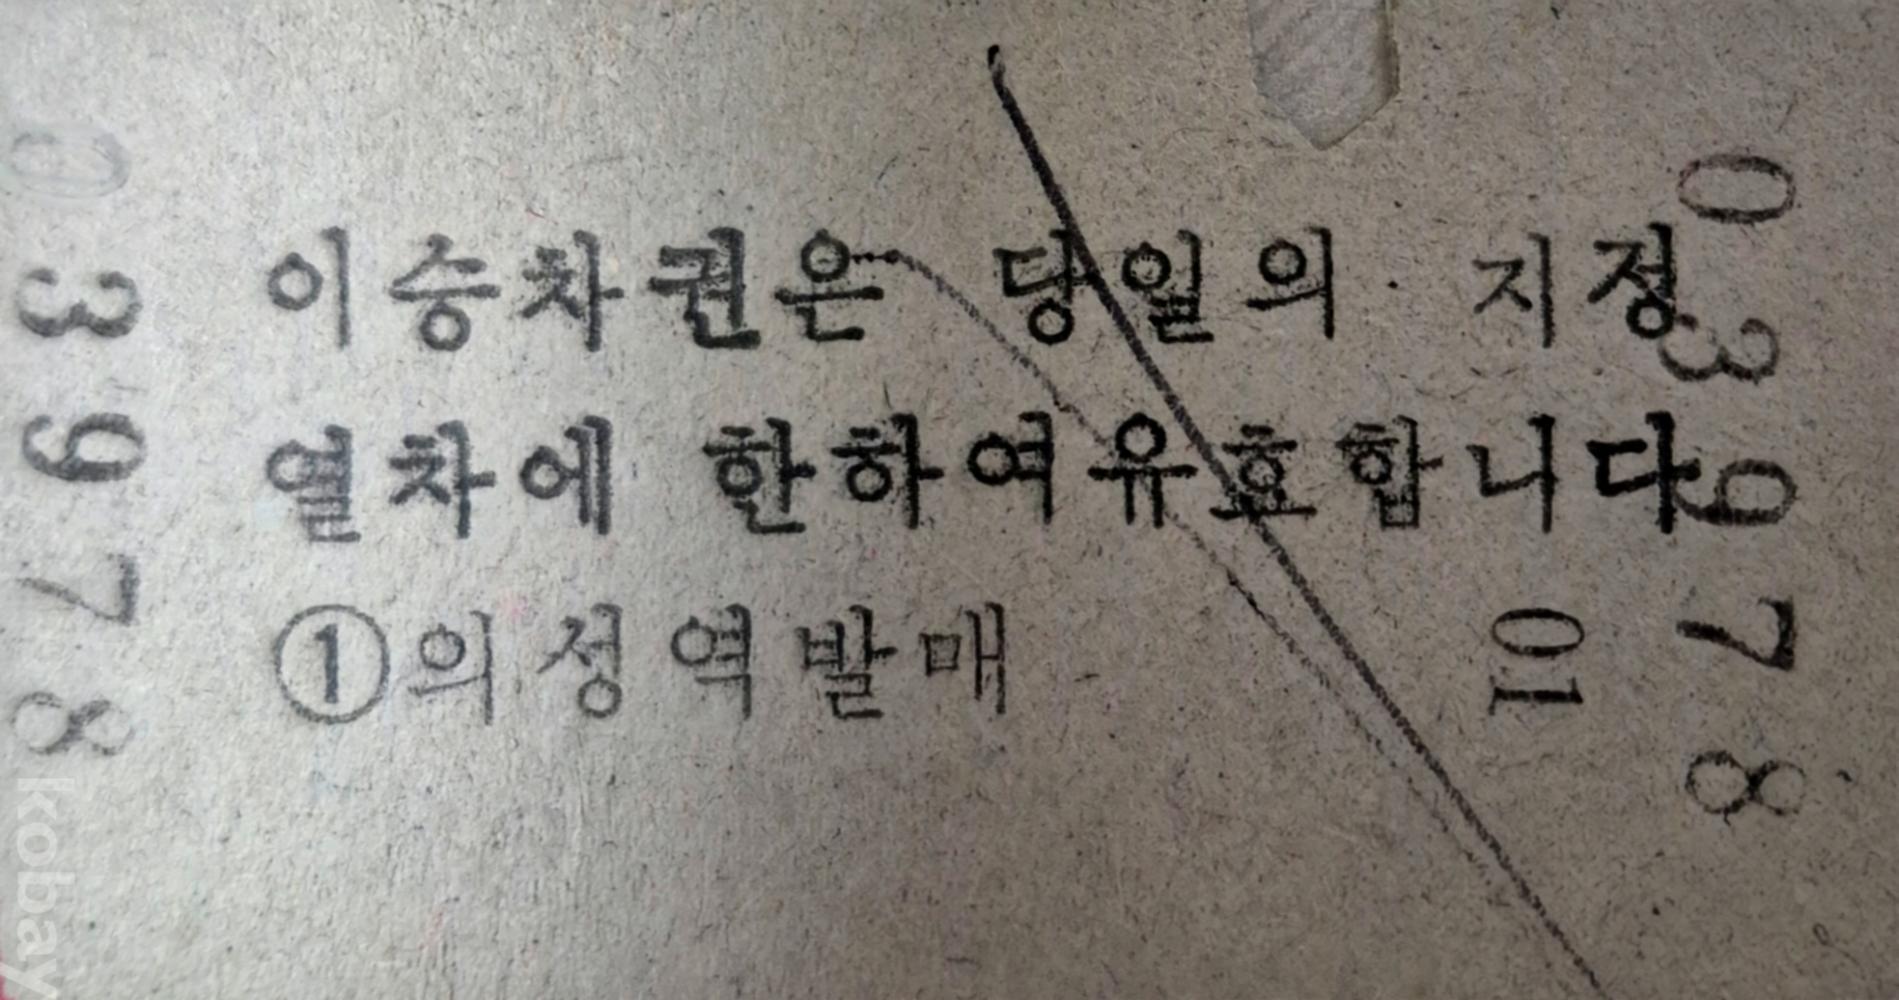 03978
이승차권은 당일의 지정
열차에 한하여유효합니다
①의정역발매
10
03978
kobay